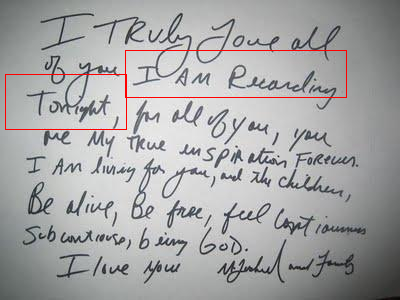 I TRULY Love all
of you I AM Recording
Tonight, for all of you, you
are My TRUE inspiration Forever.
I AM living for you, and the children,
Be alive, Be free, feel
Subcontiouse, being GOD.
I love you and Family